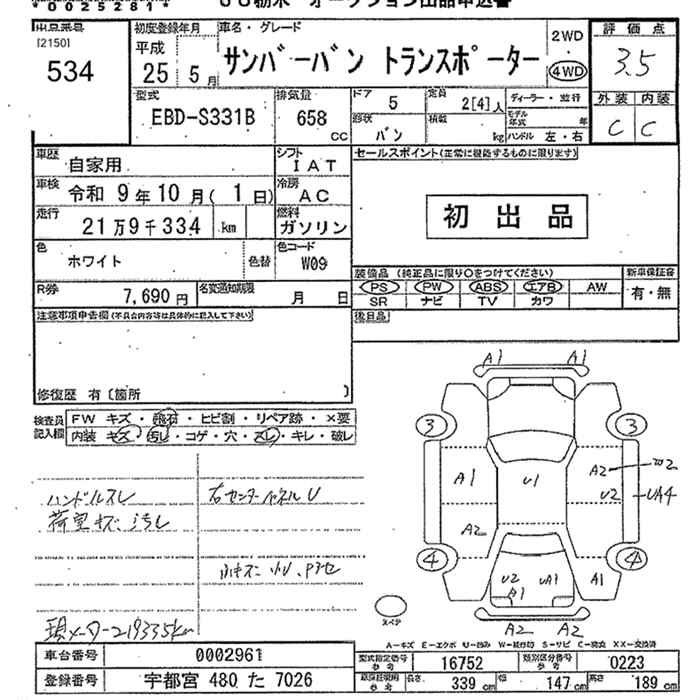 00252811
JU栃木 オークション出品申込書
出品番号
[2150]
534
初度登録年月
平成
25 5月
車名・グレード
サンバーバン トランスポーター
2WD
・
4WD
評価点
3.5
外装 内装
C C
型式
EBD-S331B
排気量
658
CC
ドア
5
定員
2[4]人
形状
バン
積載
kg
ディーラー・並行
モデル年式 年
ハンドル 左・右
車歴
自家用
シフト
IAT
車検
令和 9年10月(1日)
冷房
AC
走行
21万9千334
km
燃料
ガソリン
色
ホワイト
色替
色コード
W09
R券
7,690円
名変通知期限
月 日
セールスポイント(正常に機能するものに限ります)
初出品
装備品 (純正品に限り○をつけてください)
新車保証書
PS PW ABS エアB AW
SR ナビ TV カワ
有・無
後日品
注意事項申告欄(不具合内容等は具体的に記入して下さい)
修復歴 有〔箇所 〕
検査員
記入欄
FW キズ・飛石・ヒビ割・リペア跡・×要
内装 キズ・汚レ・コゲ・穴・スレ・キレ・破レ
ハンドルスレ
荷室キズ、汚レ
右センターパネルU
小キズ
現メーター219335km
A1 A1
3 3
A1 U1 A2 W2
U2 UA4
A2
4 4
U2 UA1 A1
A1
A2 A2
スペア
A-キズ E-エクボ U-凹み W-補修跡 S-サビ C-腐食 XX-交換済
車台番号
0002961
登録番号
宇都宮 480 た 7026
型式指定番号
16752
類別区分番号
0223
長さ
339 cm
幅
147 cm
高さ
189 cm